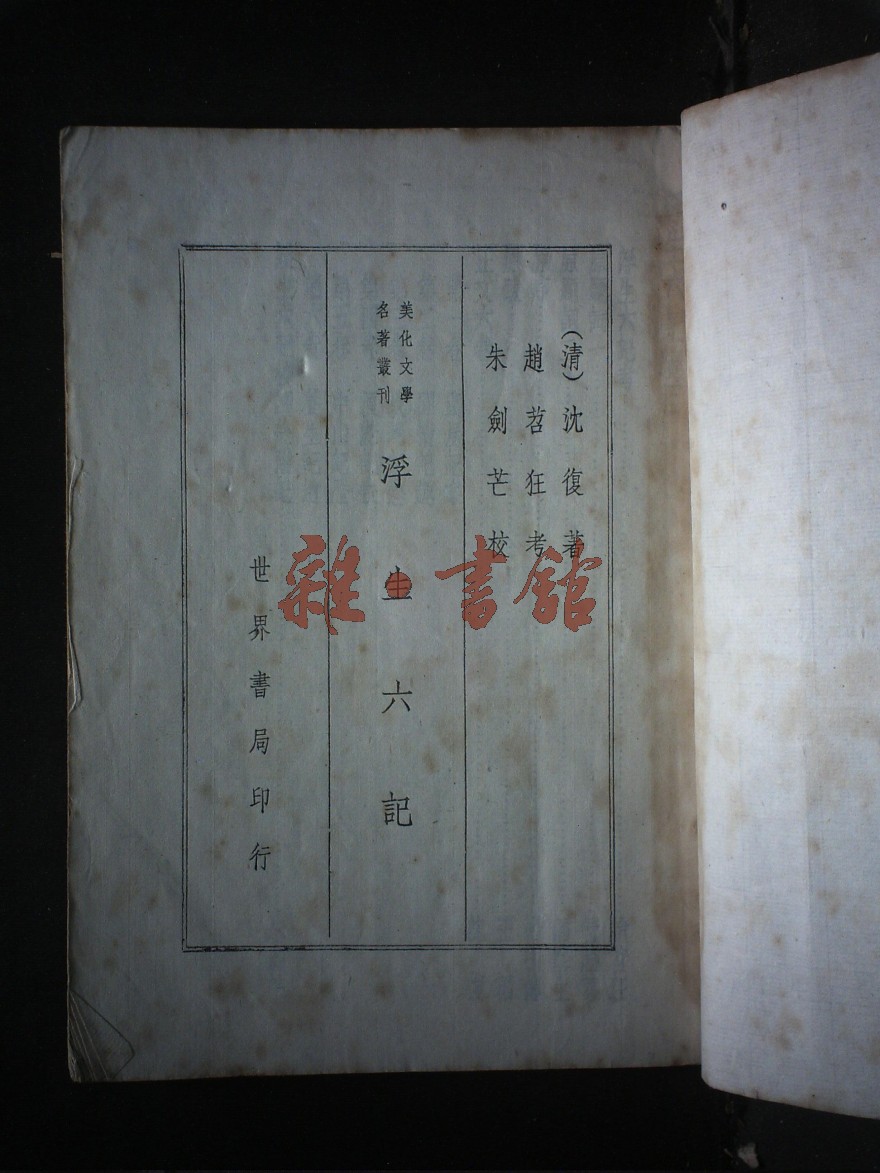 (清)沈復著
趙苕狂考
朱劍芒校
美化文學
名著叢刊
浮生六記
世界書局印行
雜·書館